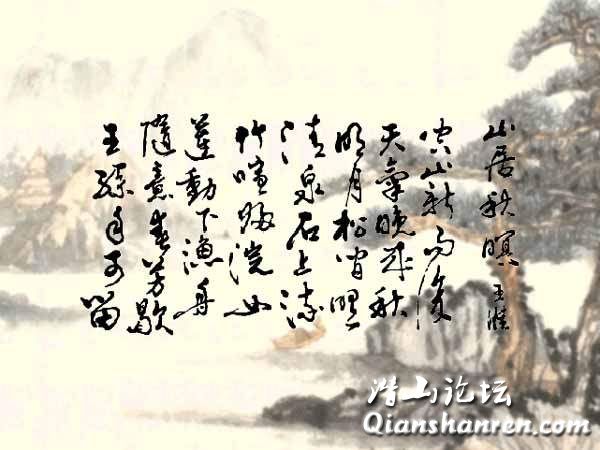 山居秋暝 王维
空山新雨后
天氣晚来秋
明月松间照
清泉石上流
竹喧归浣女
蓮動下漁舟
隨意春芳歇
王孫自可留
潜山论坛
Qianshanren.com